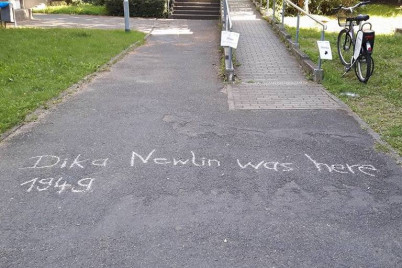 Dika Newlin was here
1949